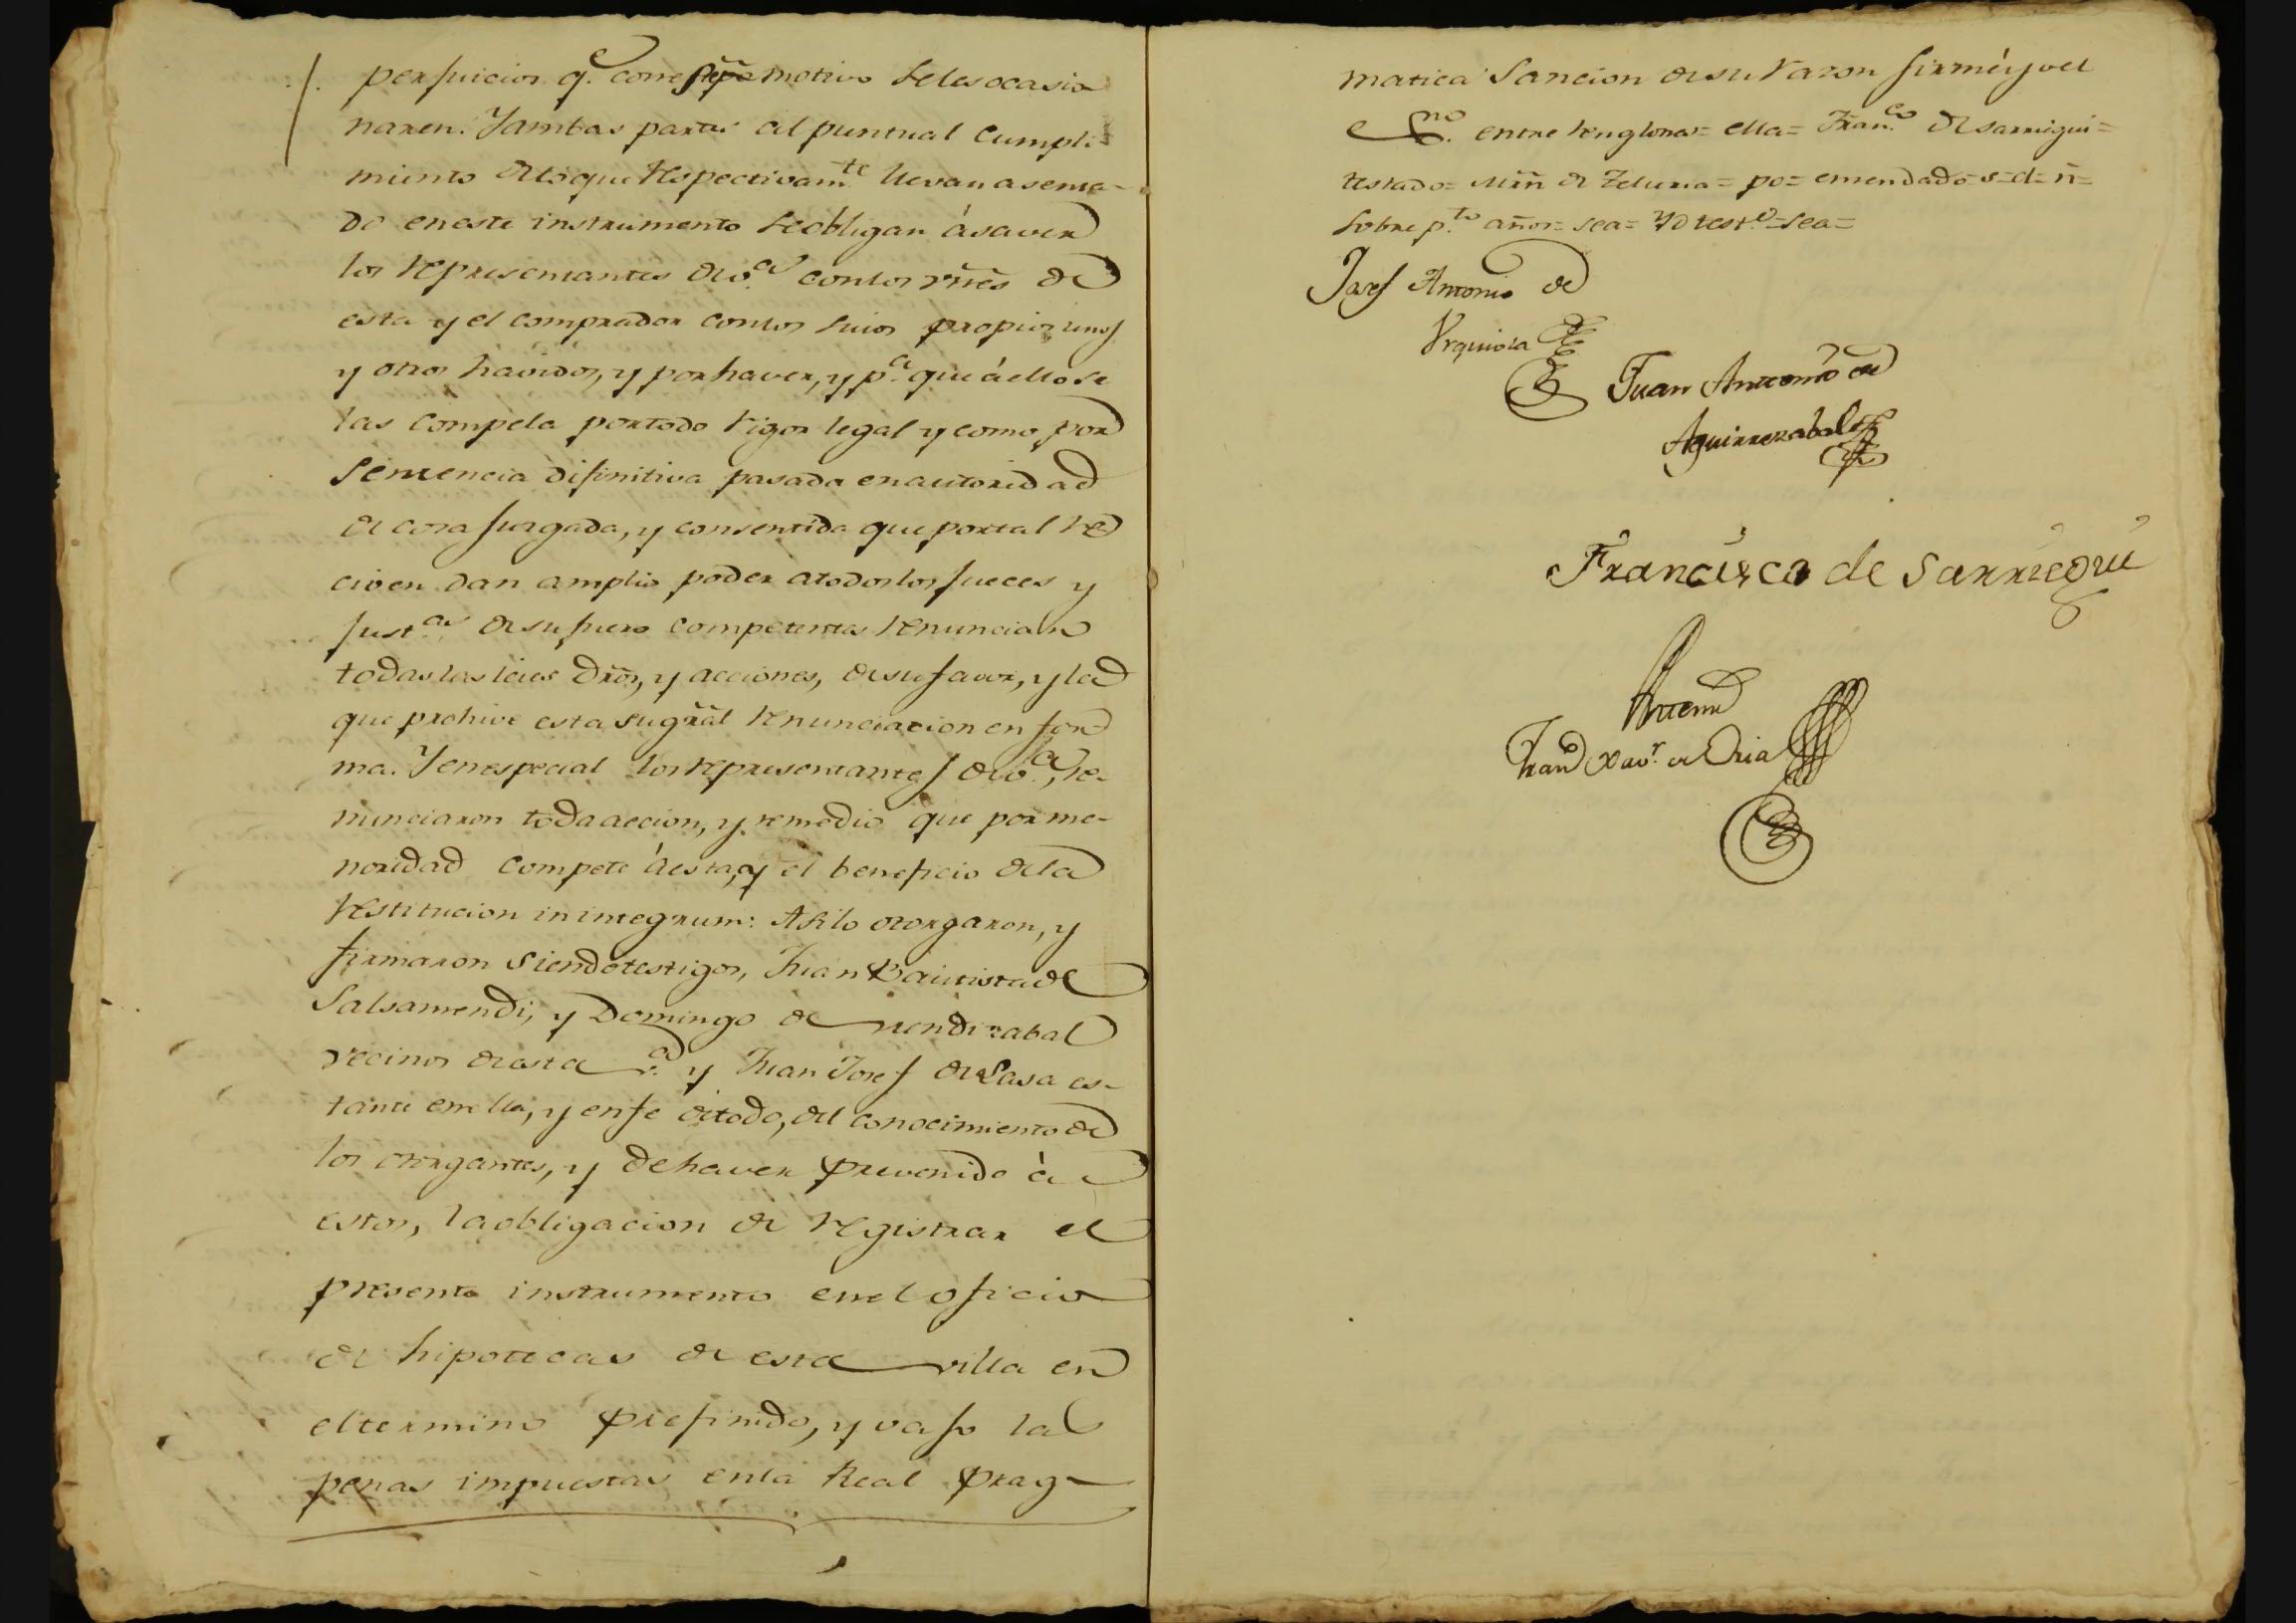 perjuicios q.e con este motivo se les ocasio
naren. Y ambas partes al puntual cumpli-
miento de lo que respectivam.te llevan asenta-
do en este instrumento se obligan á saver
los representantes de v.a con los vnes de
esta y el comprador con los suios propios unos
y otros havidos, y por haver, y p.a que á ello se
las compela por todo rigor legal y como por
Sentencia difinitiva pasada en autoridad
de cosa jusgada, y consentida que por tal re
civen dan amplio poder a todos los jueces y
just.as de su fuero competentes renuncian
todas las leies dros, y acciones, de su favor, y la
que prohive esta su gral renunciacion en for
ma. Y en especial los representantes de v.a, re-
nunciaron toda accion, y remedio que por me-
noridad compete á esta, y el beneficio de la
restitucion in integrum: Asi lo otorgaron, y
firmaron siendo testigos, Juan Bautista de
Salsamendi, y Domingo de Mendizabal
vecinos de esta v.a y Juan Josef de Lasa es-
tante en ella, y en fe de todo, del conocimiento de
los otorgantes, y de haver prevenido á
estos, la obligacion de registrar el
presente instrumento en el oficio
de hipotecas de esta villa en
el termino prefinido, y vajo las
penas impuestas en la Real Prag-
matica Sancion de su razon firmé yo el
Esno. entre renglones= ella= Fran.co de Sarriegui=
testado= Mrn de Zeluria= po= emendado= s= d= n=
Sobre p.to años= sea= Yo test.o= sea=
Josef Antonio de
Urquiola
Juan Antonio de
Aguirrezabal
Francisco de Sarriegui
Antemi
Fran.co Xav.r de Oria